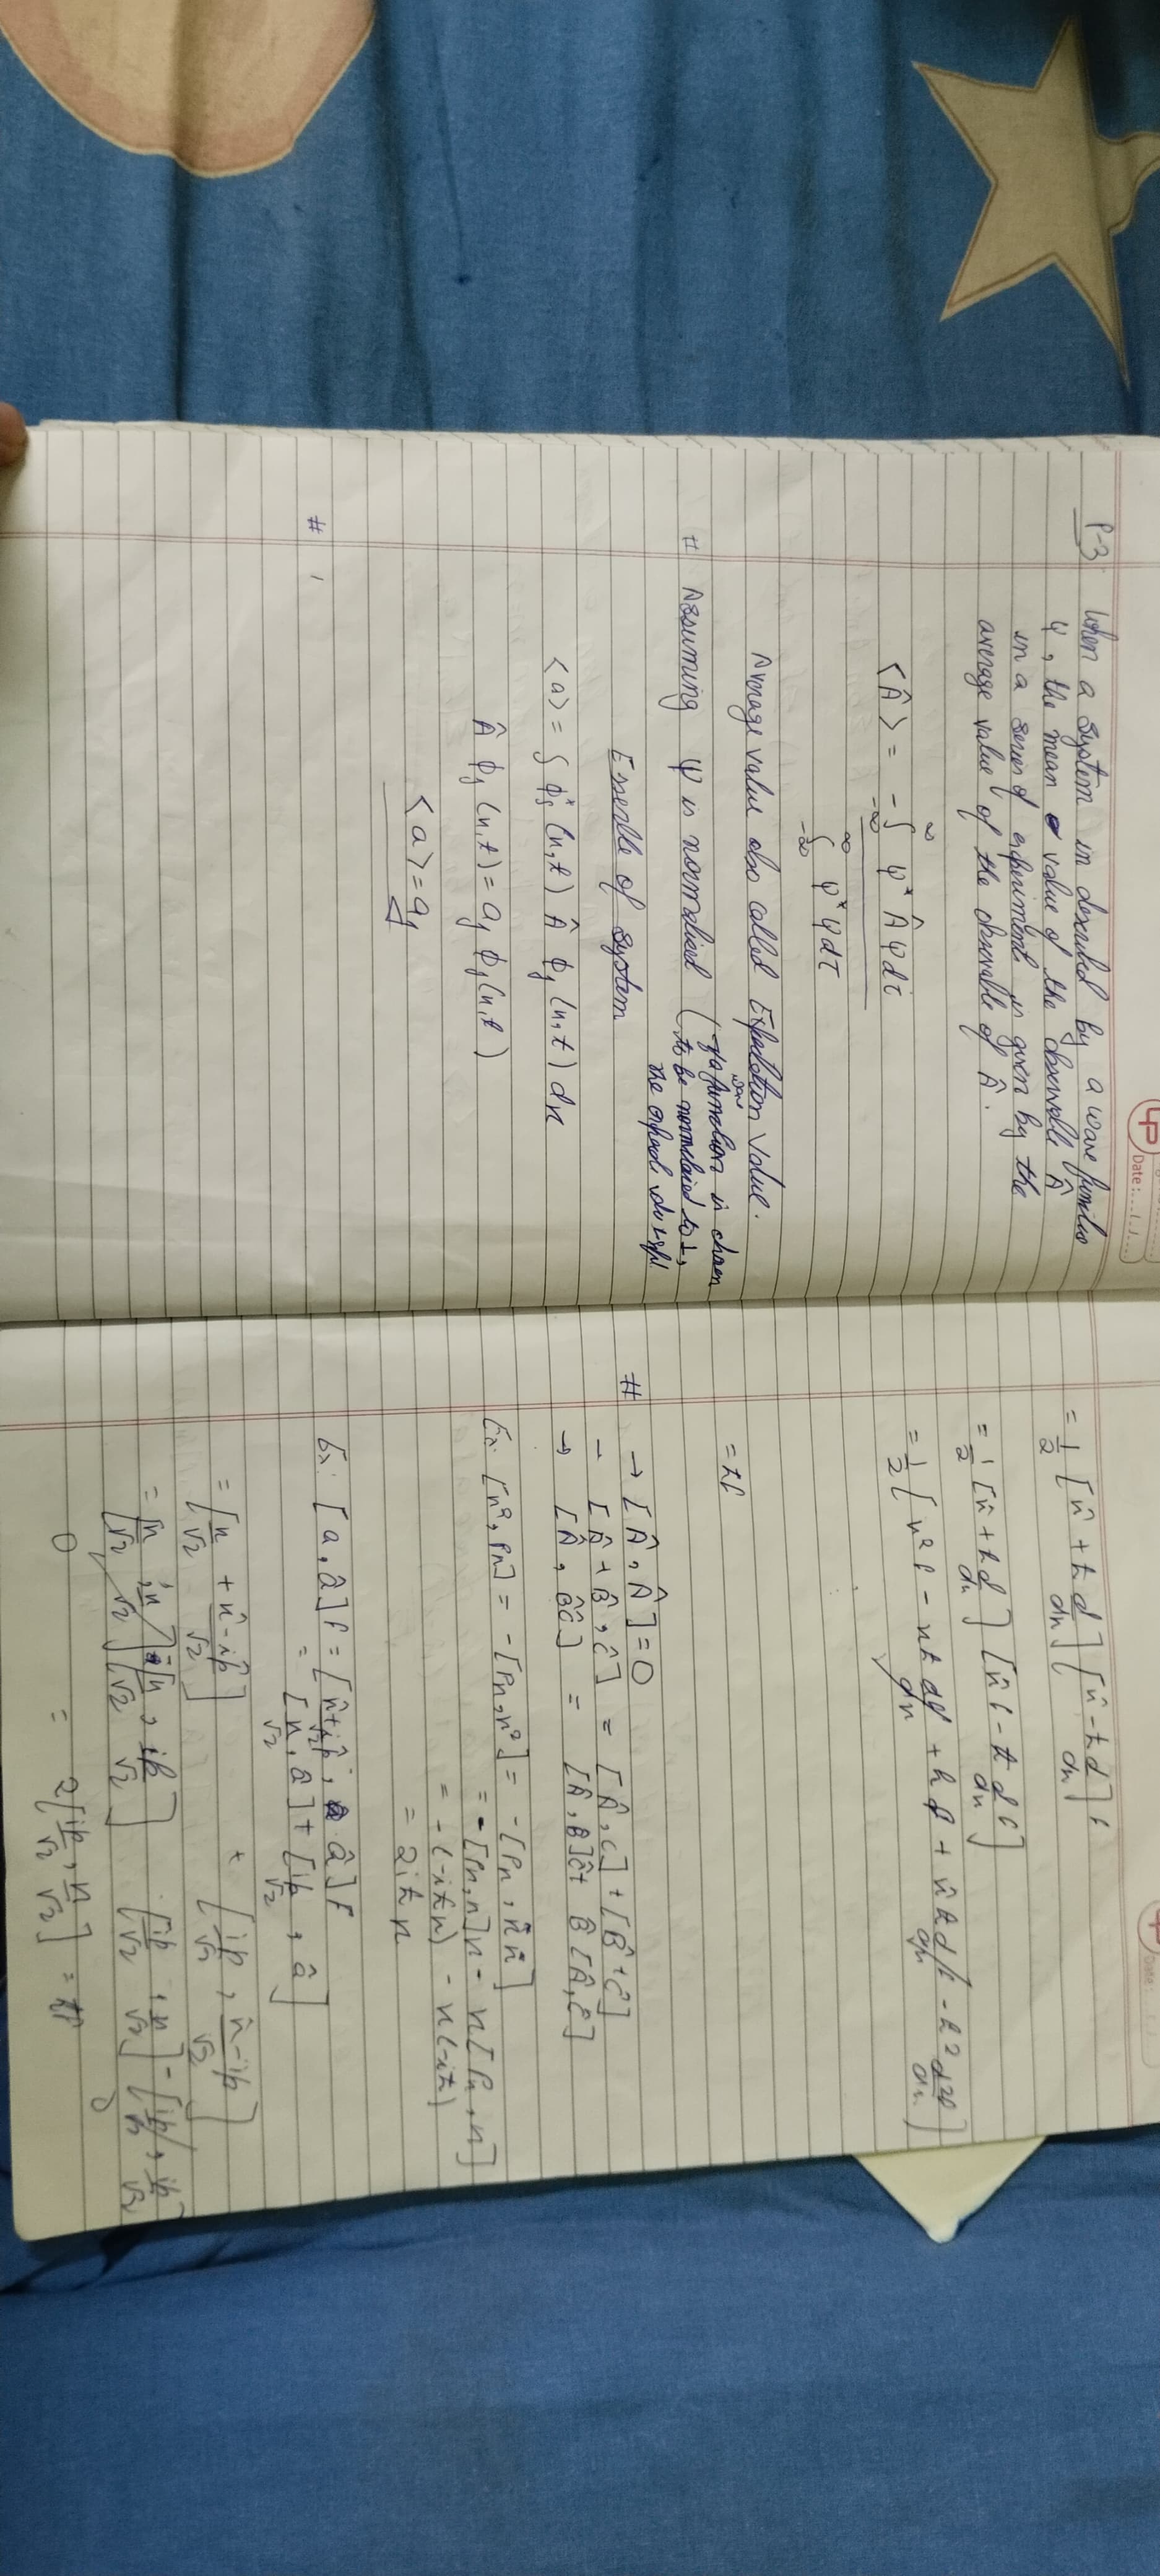 Date:
P-3 When a system in described by a wave function
ψ, the mean value of the observable Â
in a series of experiment is given by the
average value of the observable of Â.
⟨Â⟩ = -∞∫∞ ψ* Â ψ dτ
-∞∫∞ ψ* ψ dτ
Average value also called Expectation value.
# Assuming ψ is normalised (
wave function is chosen
to be normalised to 1,
the
of system
⟨a⟩ = ∫ ϕj* (x,t) Â ϕj (x,t) dx
Â ϕj (x,t) = aj ϕj (x,t)
⟨a⟩ = aj
#
= 1/2 [x̂ + ħ d/dx] [x̂ - ħ d/dx] f
= 1/2 [x̂ + ħ d/dx] [x̂ f - ħ df/dx]
= 1/2 [x² f - xħ df/dx + ħ f + x̂ ħ df/dx - ħ² d²f/dx]
= ħf
# → [Â, Â] = 0
→ [Â + B̂, Ĉ] = [Â, C] + [B̂ + Ĉ]
→ [Â, B̂Ĉ] = [Â, B]Ĉ + B̂ [Â, Ĉ]
Ex: [x², Px] = - [Px, x²] = - [Px, x̂x̂]
= - [Px, x] x - x [Px, x]
= - (-iħx) - x (-iħ)
= 2iħx
Ex: [a, â] f = [x̂+ip̂/√2, â] f
= [x/√2, â] + [ip/√2, â]
= [x/√2 + x̂-ip̂/√2] + [ip/√2, x̂-ip/√2]
= [x/√2, x/√2] - [x/√2, ip/√2] [ip/√2, x/√2] - [ip/√2, ip/√2]
0 0
= 2 [ip/√2, x/√2] = ħf